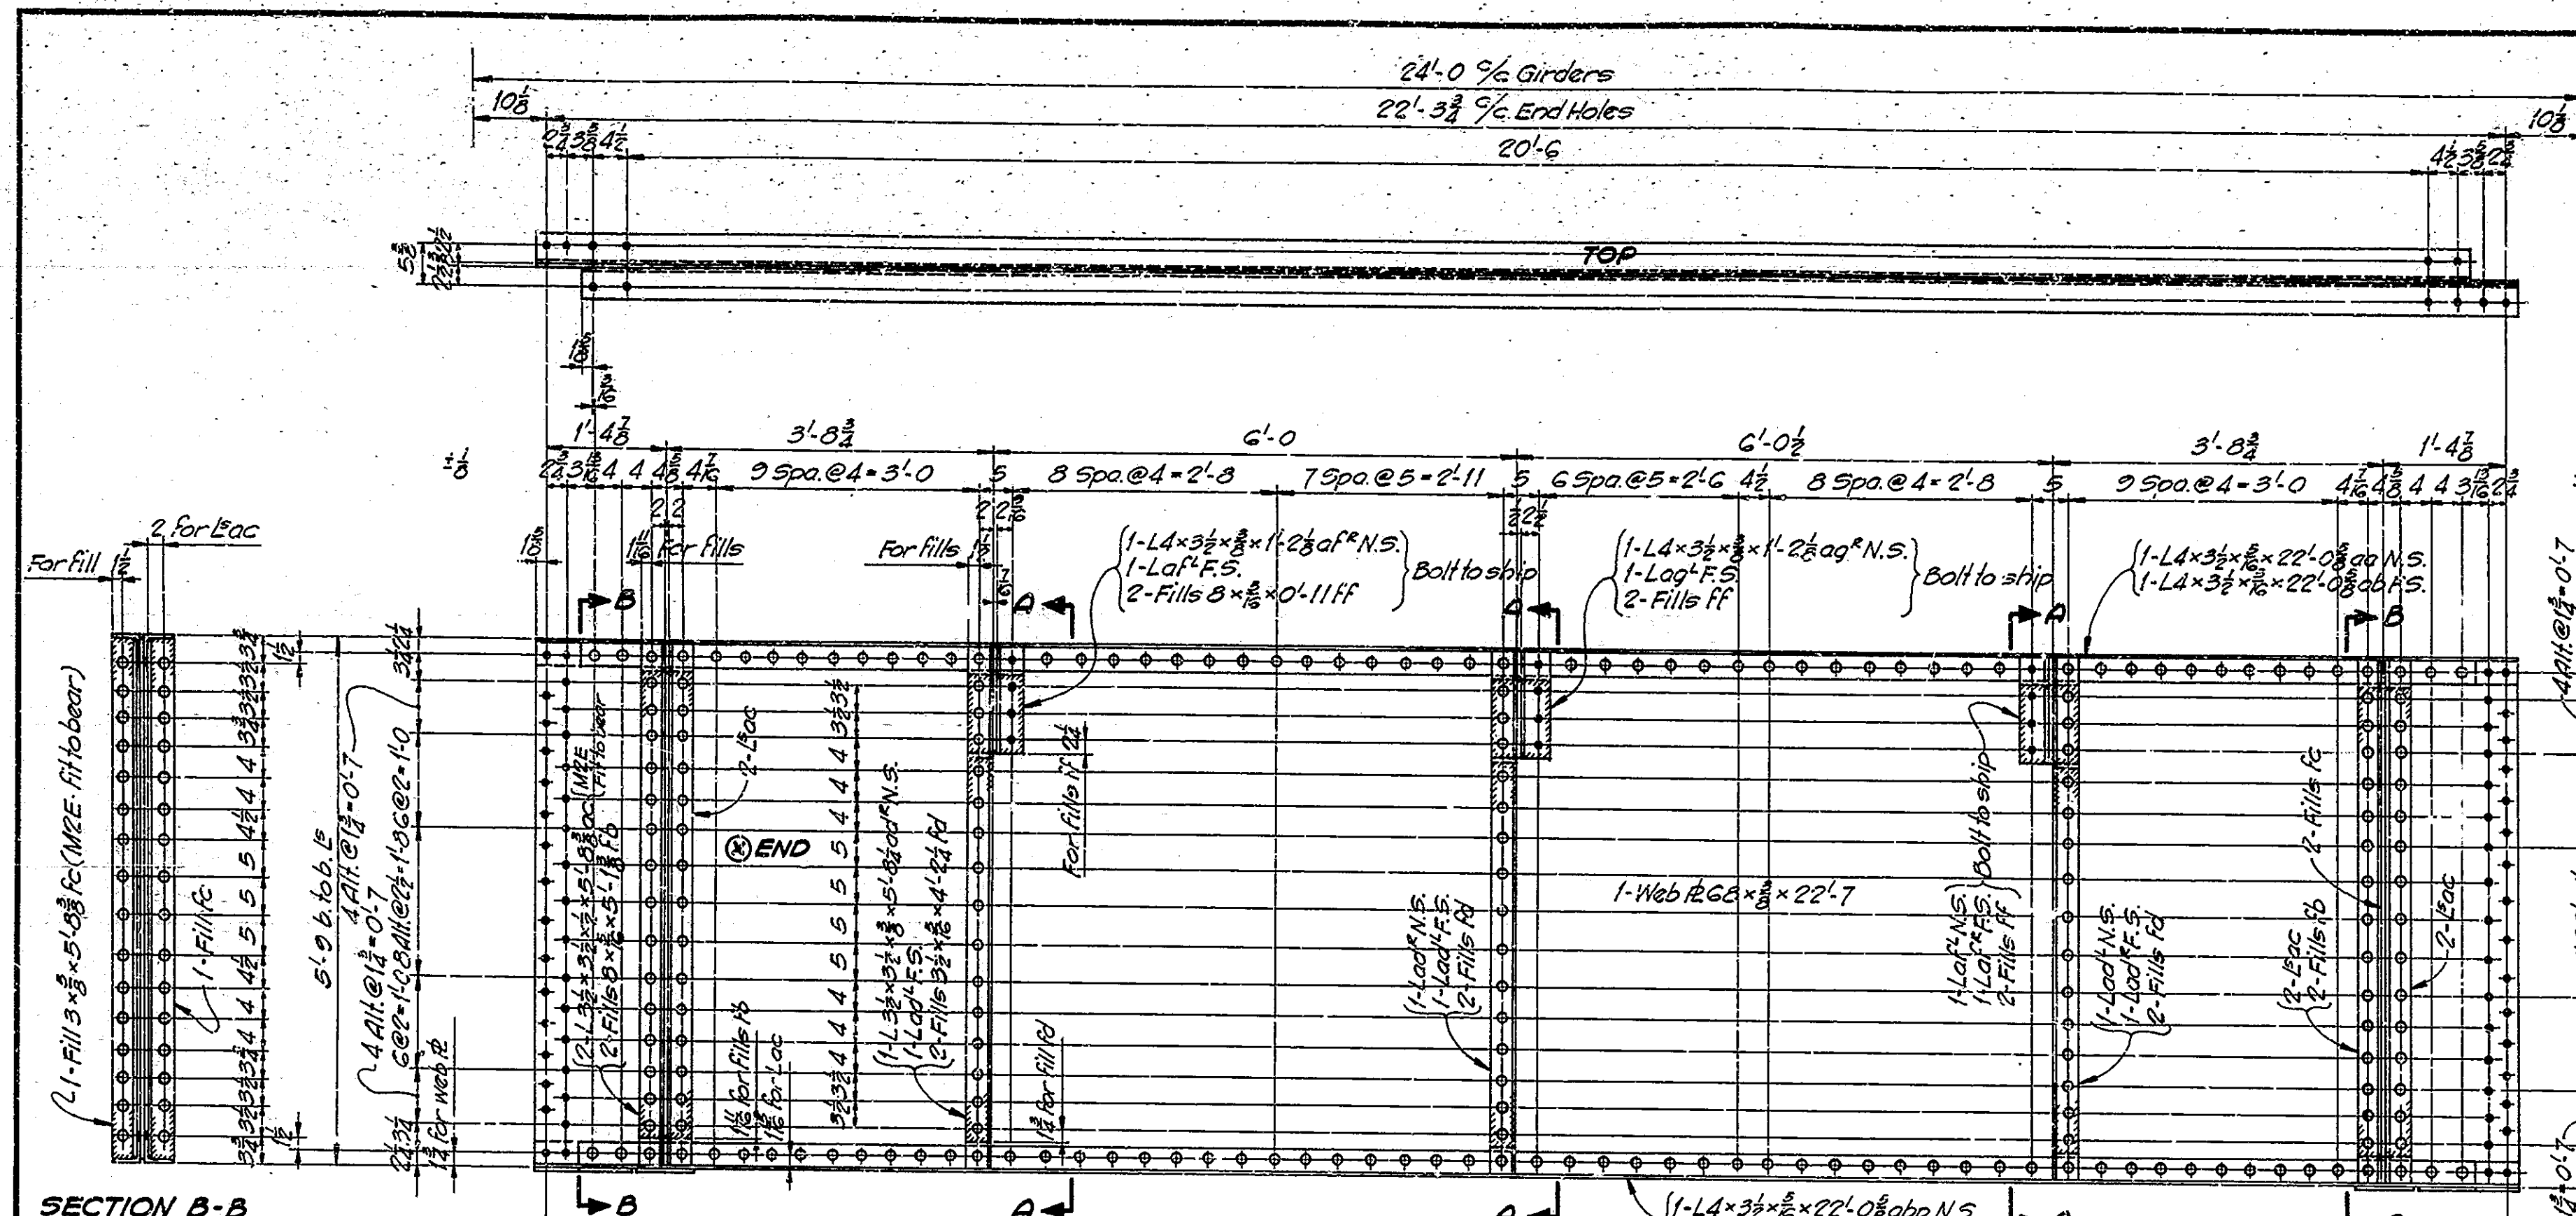 24'-0 c/c Girders
10 1/8
22'-3 3/4 c/c End Holes
10 1/8
2 3/4 3 5/8 4 1/2
20'-6
4 1/2 3 5/8 2 3/4
TOP
1'-4 7/8
3'-8 3/4
6'-0
6'-0 1/2
3'-8 3/4
1'-4 7/8
± 1/8
2 3/4 3 13/16 4 4 4 5/8 4 7/16
9 Spa.@4=3'-0
5
8 Spa.@4=2'-8
7 Spa.@5=2'-11
5
6 Spa.@5=2'-6
4 1/2
8 Spa.@4=2'-8
5
9 Spa.@4=3'-0
4 7/16 4 5/8 4 4 3 13/16 2 3/4
2 2
2 for Ls ac
For fill 1 1/2
1 11/16 For fills
For fills 1 1/2
{1-L4×3 1/2×3/8×1'-2 1/8 afR N.S.
1-L afL F.S.
2-Fills 8×5/16×0'-11 ff}
Bolt to ship
{1-L4×3 1/2×3/8×1'-2 1/8 agR N.S.
1-L agL F.S.
2-Fills ff}
Bolt to ship
{1-L4×3 1/2×5/16×22'-0 5/8 aa N.S.
1-L4×3 1/2×5/16×22'-0 5/8 ab F.S.
4 Alt.@1 3/4=0'-7
B
A
A
A
B
1-Fill 3×3/8×5'-8 3/8 fc (M2E-Fit to bear)
1-Fill fc
3 3/4 3 1/2 3 1/2 3 3/4 4 4 4 1/2 5 5 5 4 1/2 4 4 3 3/4 3 1/2 3 1/2 3 3/4
1 1/2
1 1/2
5'-9 b. to b. Ls
4 Alt.@1 3/4=0'-7
4 Alt.@1 3/4=0'-7
6@2=1'-0 8 Alt.@2 1/2=1'-8 6@2=1'-0
2 1/4 3 1/4
1 3/4 for web PL
{2-L3 1/2×3 1/2×1/2×5'-8 3/8 ac {M2E
Fit to bear
2-Fills 8×5/16×5'-1 3/8 fb
2-Ls ac
END
1 11/16 for fills fb
1 5/16 for L ac
3 1/2 3 1/2 4 4 4 5 5 5 5 5 4 4 4 3 1/2 3 1/2
{1-L3 1/2×3 1/2×3/8×5'-8 1/4 adR N.S.
1-L adL F.S.
2-Fills 3 1/2×5/16×4'-2 1/4 fd
For fills ff 2 1/4
1 3/4 for fill fd
{1-L adR N.S.
1-L adL F.S.
2-Fills fd
1-Web PL 68×3/8×22'-7
1-L afL N.S.
1-L afR F.S.
2-Fills ff}
Bolt to ship
{1-L adL N.S.
1-L adR F.S.
2-Fills fd
2-Fills fc
{2-Ls ac
2-Fills fb
2-Ls ac
SECTION B-B
B
A
{1-L4×3 1/2×5/16×22'-0 5/8 abp N.S.